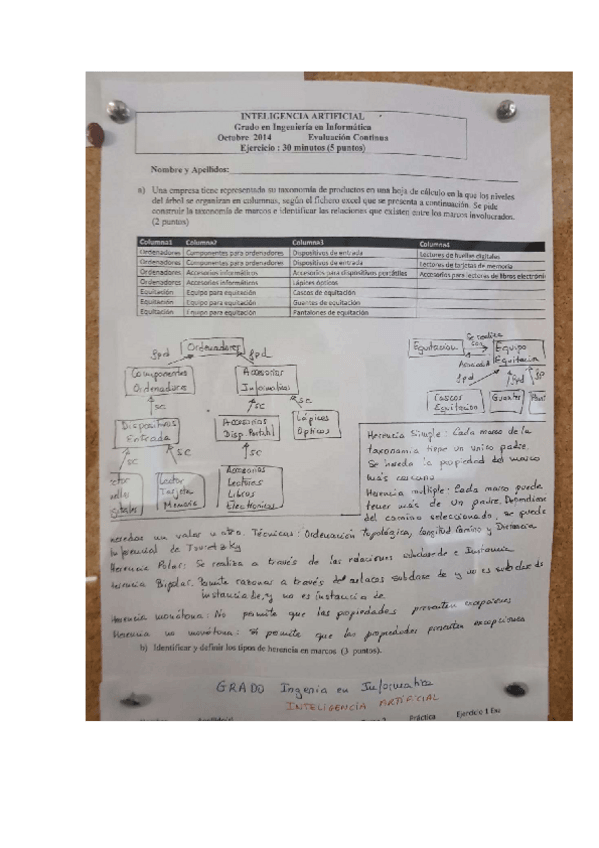 INTELIGENCIA ARTIFICIAL
Grado en Ingeniería en Informática
Octubre 2014 Evaluación Continua
Ejercicio : 30 minutos (5 puntos)
Nombre y Apellidos:
a) Una empresa tiene representada su taxonomía de productos en una hoja de cálculo en la que los niveles
del árbol se organizan en columnas, según el fichero excel que se presenta a continuación. Se pide
construir la taxonomía de marcos e identificar las relaciones que existen entre los marcos involucrados.
(2 puntos)
Columna1 Columna2 Columna3 Columna4
Ordenadores Componentes para ordenadores Dispositivos de entrada Lectores de huellas digitales
Ordenadores Componentes para ordenadores Dispositivos de entrada Lectores de tarjetas de memoria
Ordenadores Accesorios informáticos Accesorios para dispositivos portátiles Accesorios para lectores de libros electróni
Ordenadores Accesorios informáticos Lápices ópticos
Equitación Equipo para equitación Cascos de equitación
Equitación Equipo para equitación Guantes de equitación
Equitación Equipo para equitación Pantalones de equitación
fpd Ordenadores fpd
Componentes Ordenadores
Accesorios Informáticos
SC SC SC
Dispositivos Entrada
Accesorios Disp. Portátil
Lápices Opticos
SC SC SC
Lector Tarjeta Memoria
Accesorios Lectores Libros Electronicos
Equitacion
Se realiza con
Equipo Equitacion
fpd fpd
Cascos Equitacion
Guantes
Herencia Simple: Cada marco de la
taxonomía tiene un unico padre.
Se hereda la propiedad del marco
más cercano
Herencia multiple: Cada marco puede
tener más de un padre. Dependiendo
del camino seleccionado, se puede
heredar un valor u otro. Técnicas: Ordenación topológica, Longitud Camino y Distancia
Inferencial de Touretzky
Herencia Polar: Se realiza a través de las relaciones subclase de e Instancia
Herencia Bipolar. Permite razonar a través del enlaces subclase de y no es subclase de
instancia de, y no es instancia de.
Herencia monótona: No permite que las propiedades presenten excepciones
Herencia no monótona: Si permite que las propiedades presenten excepciones
b) Identificar y definir los tipos de herencia en marcos (3 puntos).
GRADO Ingenia en Informatica
INTELIGENCIA ARTIFICIAL
Práctica Ejercicio 1 Exa